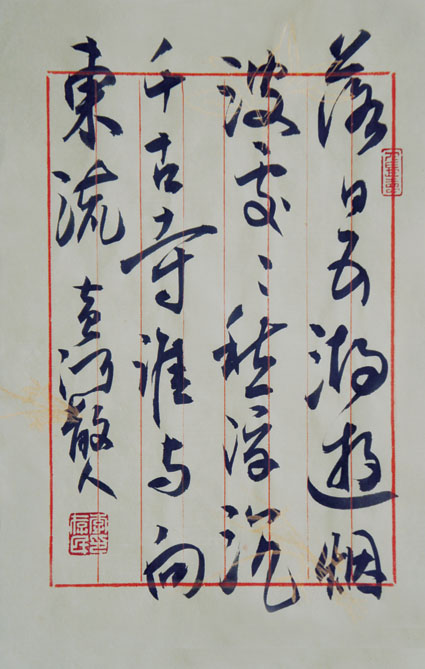 落日五湖遊烟
波處々愁浮沉
千古事誰与问
東流 黄河散人